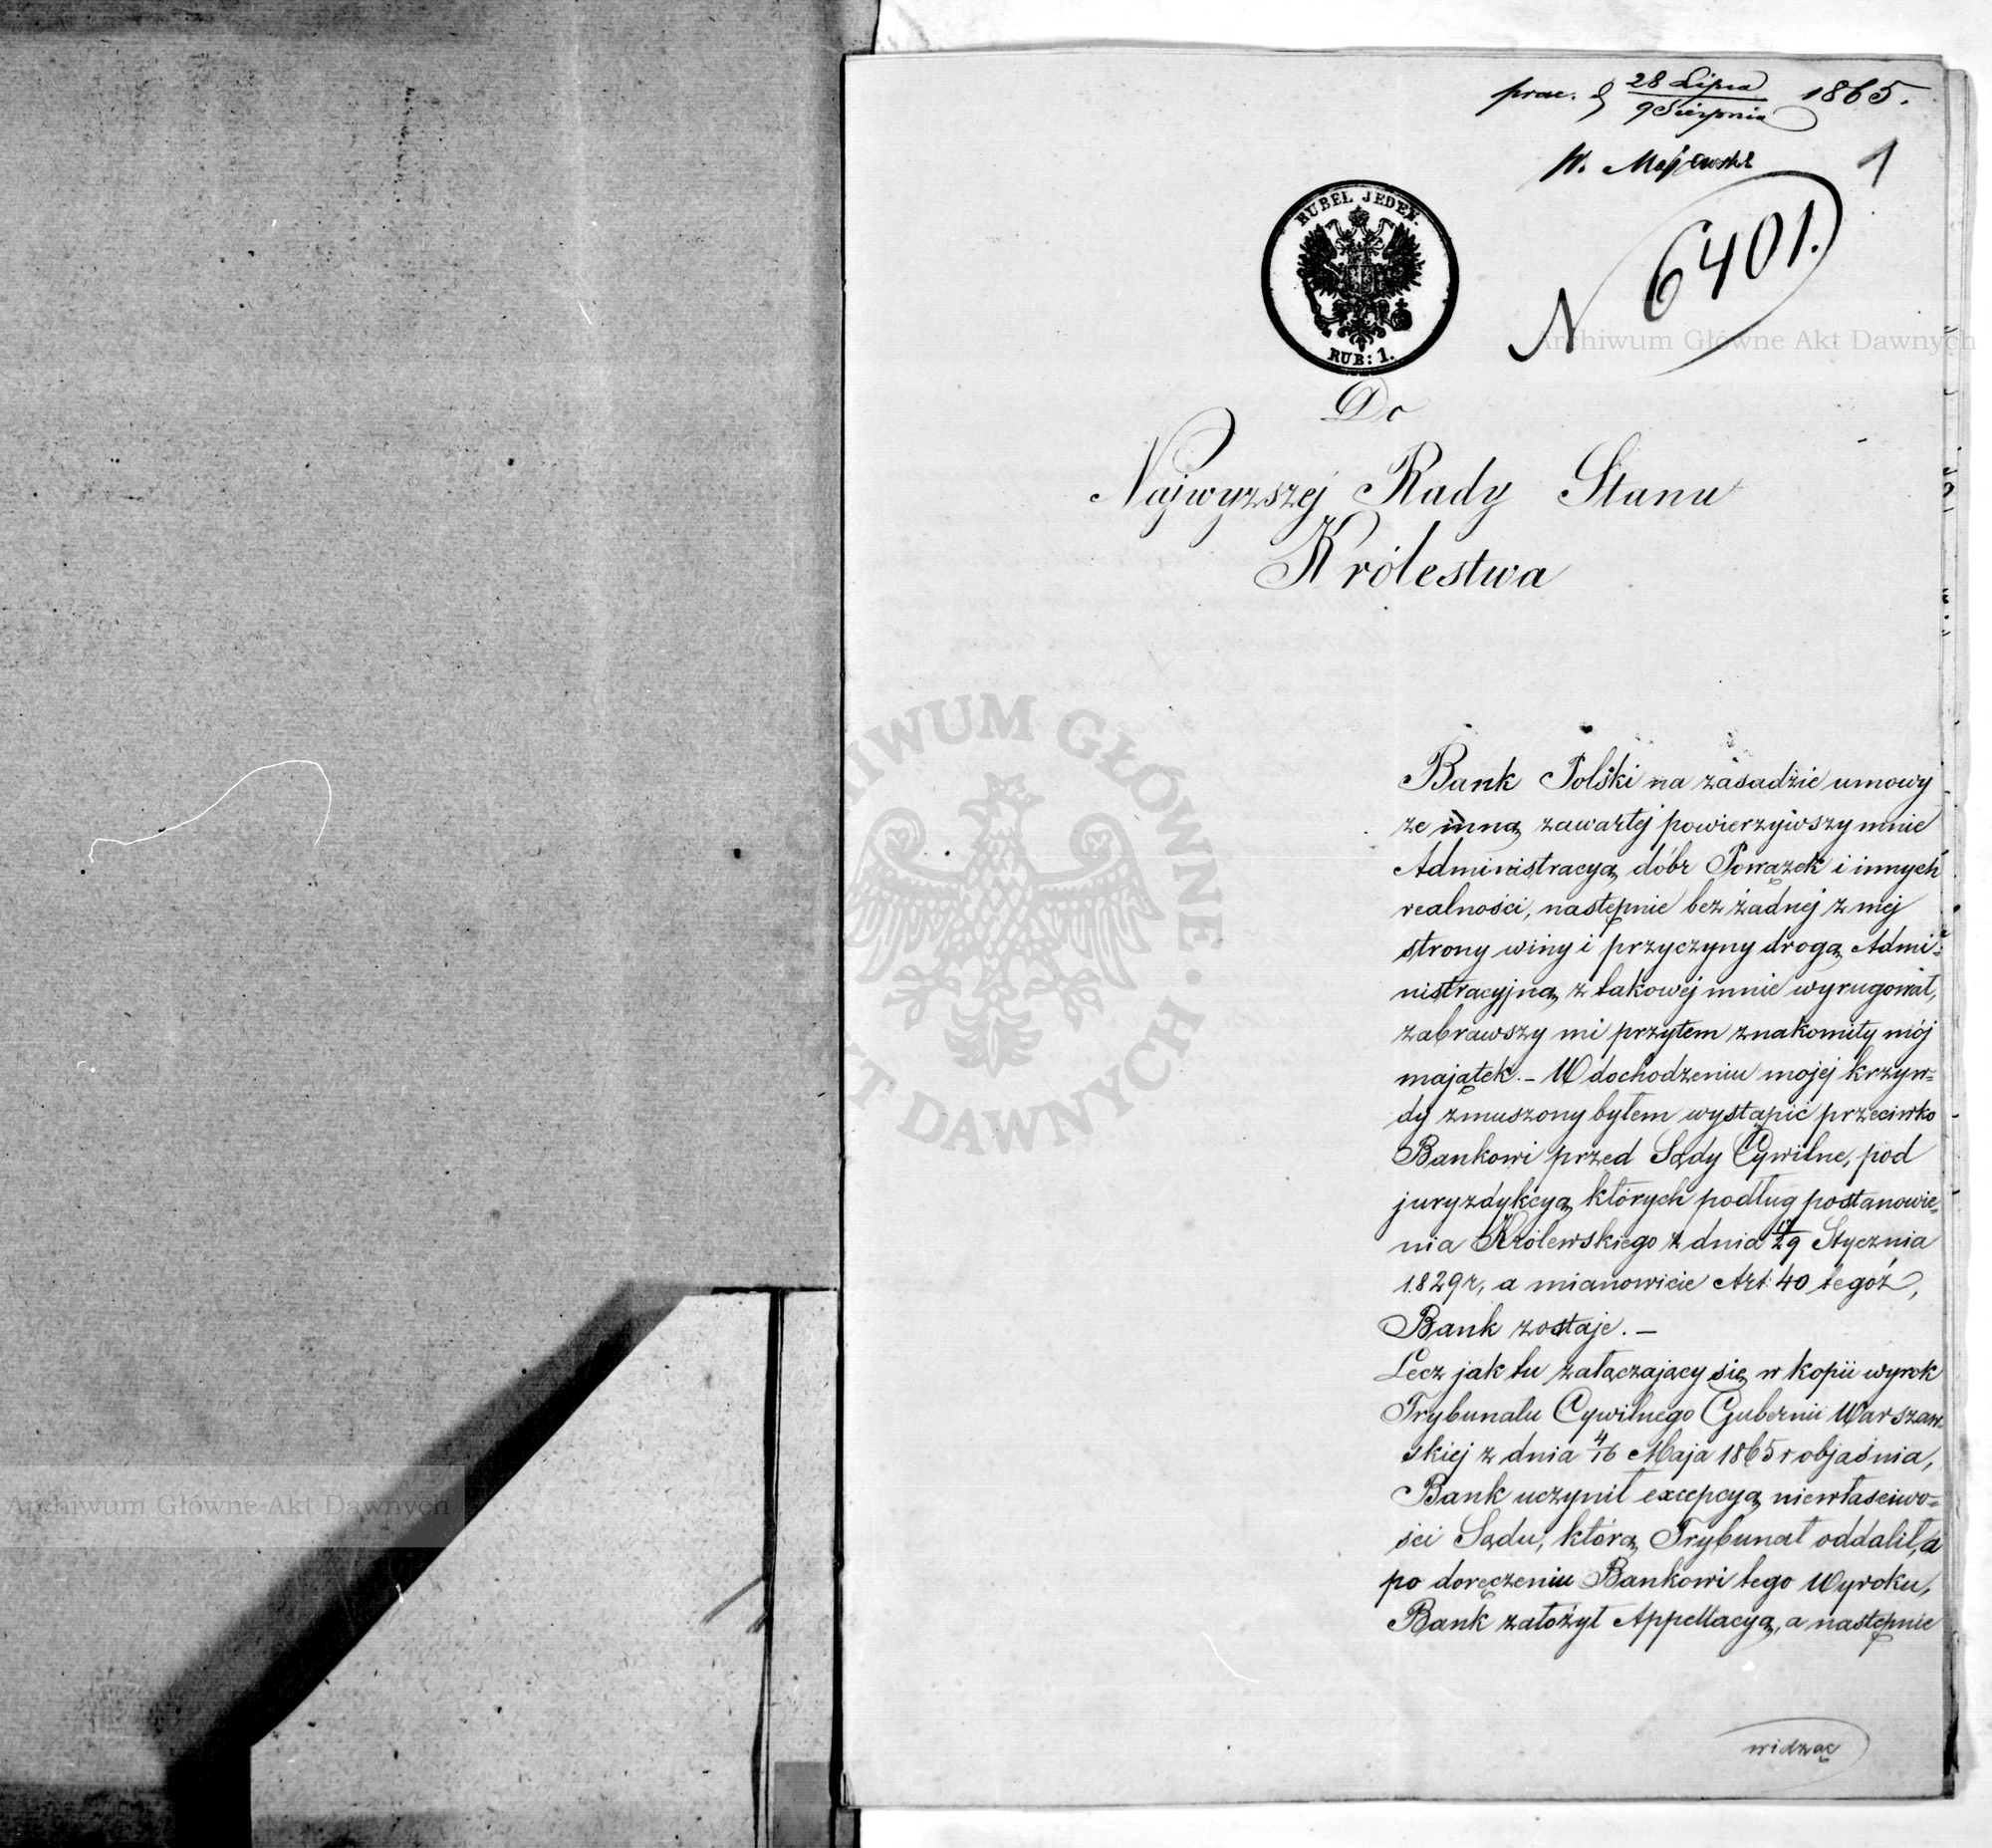 prac. d 28 Lipca 1865.
9 Sierpnia
W. Majewski
1
N 6401.
RUBEL JEDEN.
RUB: 1.
Do
Najwyższej Rady Stanu
Królestwa
Bank Polski na zasadzie umowy
ze inną zawartej powierzywszy mnie
Administracyą dóbr Powązek i innych
realności, następnie bez żadnej z mej
strony winy i przyczyny drogą Admi=
nistracyjną z takowej mnie wyrugował,
zabrawszy mi przytem znakomity mój
majątek. – W dochodzeniu mojej krzyw=
dy zmuszony byłem wystąpić przeciwko
Bankowi przed Sądy Cywilne, pod
juryzdykcyą których podług postanowie=
nia Królewskiego z dnia 17/29 Stycznia
1829 r, a mianowicie Art: 40 tegóż,
Bank zostaje. –
Lecz jak tu załączający się w kopii wyrok
Trybunału Cywilnego Gubernii Warszaw=
skiej z dnia 4/16 Maja 1865 r objaśnia,
Bank uczynił excepcyą niewłaściwo=
ści Sądu, którą Trybunał oddalił, a
po doręczeniu Bankowi tego Wyroku,
Bank założył Appellacyą, a następnie
widząc
Archiwum Główne Akt Dawnych
Archiwum Główne Akt Dawnych
ARCHIWUM GŁÓWNE · AKT DAWNYCH ·